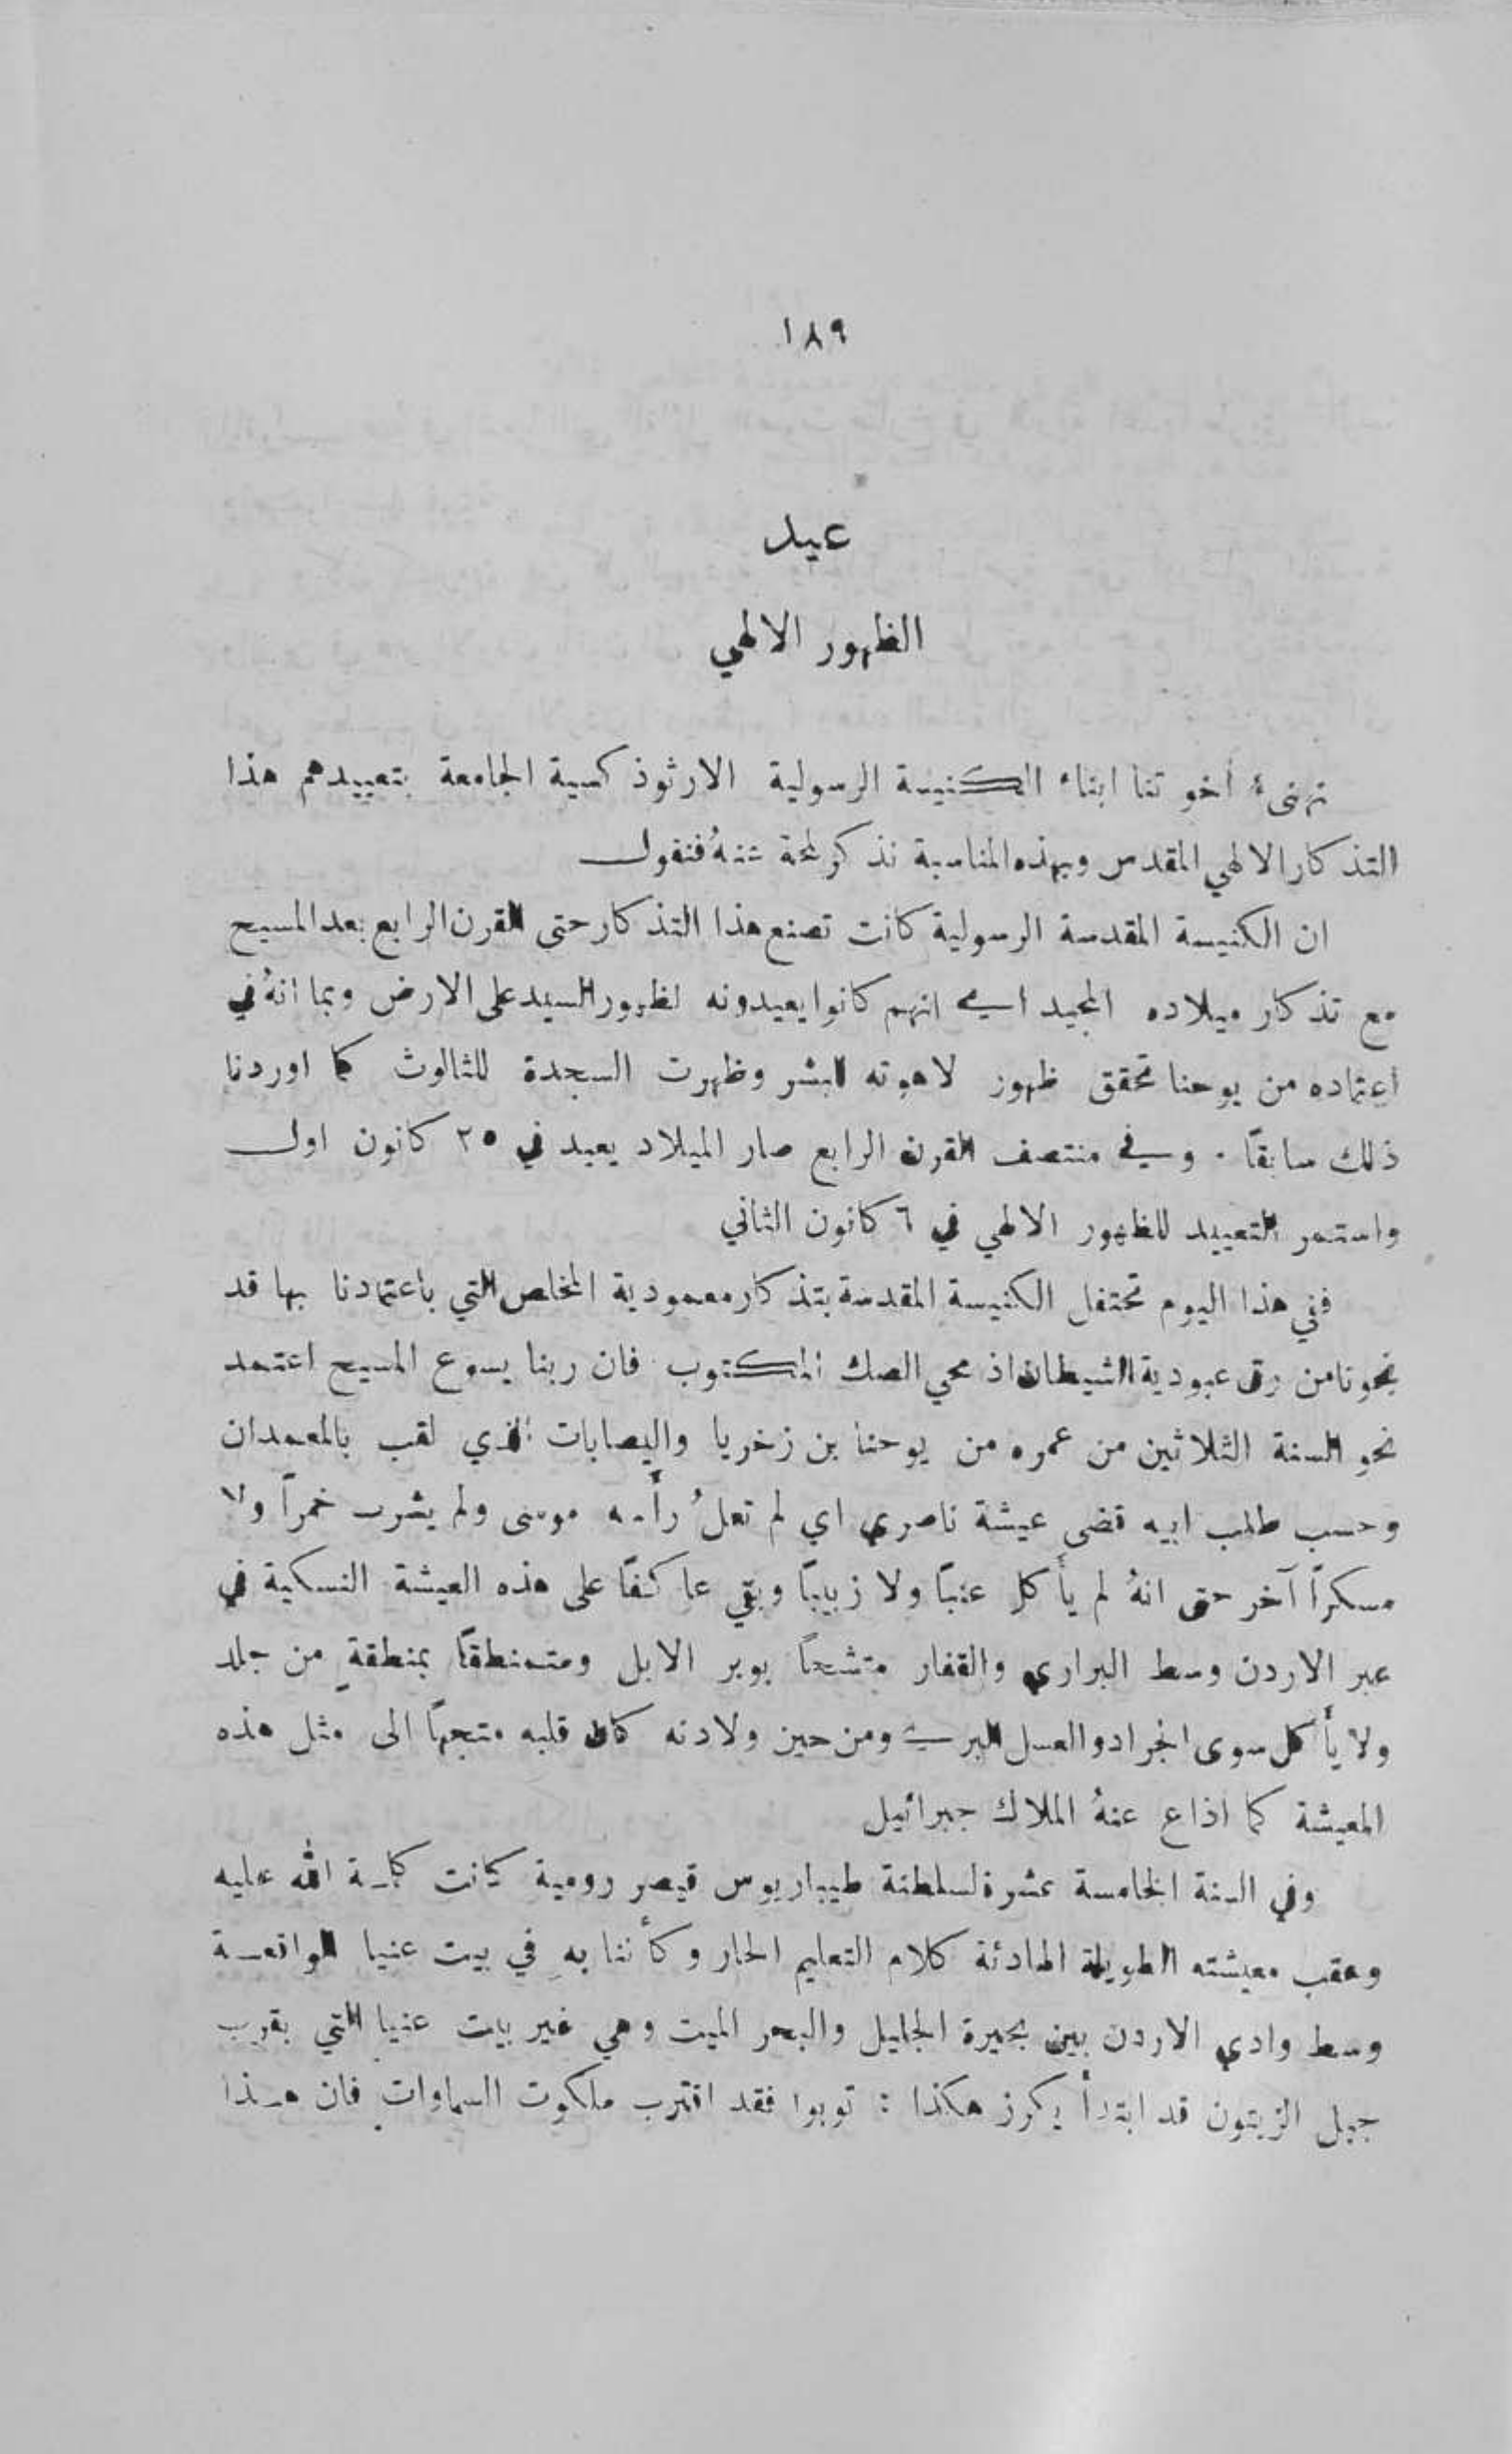 ١٨٩
عيد
الظهور الالهي
نهنىء أخوتنا ابناء الكنيسة الرسولية الارثوذكسية الجامعة بتعييدهم هذا
التذكار الالهي المقدس وبهذه المناسبة نذكر لمحة عنهُ فنقول
ان الكنيسة المقدسة الرسولية كانت تصنع هذا التذكار حتى القرن الرابع بعد المسيح
مع تذكار ميلاده المجيد اي انهم كانوا يعيدونه لظهور السيد على الارض وبما انهُ في
اعتماده من يوحنا تحقق ظهور لاهوته للبشر وظهرت السجدة للثالوث كما اوردنا
ذلك سابقًا . وفي منتصف القرن الرابع صار الميلاد يعيد في ٢٥ كانون اول
واستمر التعييد للظهور الالهي في ٦ كانون الثاني
ففي هذا اليوم تحتفل الكنيسة المقدسة بتذكار معمودية المخلص التي باعتمادنا بها قد
نجونا من رق عبودية الشيطان اذ محي الصك المكتوب فان ربنا يسوع المسيح اعتمد
نحو السنة الثلاثين من عمره من يوحنا بن زخريا واليصابات الذي لقب بالمعمدان
وحسب طلب ابيه قضى عيشة ناصري اي لم تعلُ رأسه موسى ولم يشرب خمراً ولا
مسكراً آخر حتى انهُ لم يأكل عنبًا ولا زبيبًا وبقي عاكفًا على هذه العيشة النسكية في
عبر الاردن وسط البراري والقفار متشحًا بوبر الابل ومتمنطقًا بمنطقةٍ من جلد
ولا يأكل سوى الجراد والعسل البري ومن حين ولادته كان قلبه متجهًا الى مثل هذه
المعيشة كما اذاع عنهُ الملاك جبرائيل
وفي السنة الخامسة عشرة لسلطنة طيباريوس قيصر رومية كانت كلمة الله عليه
وعقب معيشته الطويلة الهادئة كلام التعليم الحار وكأننا بهِ في بيت عنيا الواقعة
وسط وادي الاردن بين بحيرة الجليل والبحر الميت وهي غير بيت عنيا التي بقرب
جبل الزيتون قد ابتدأ يكرز هكذا : توبوا فقد اقترب ملكوت السماوات فان هذا